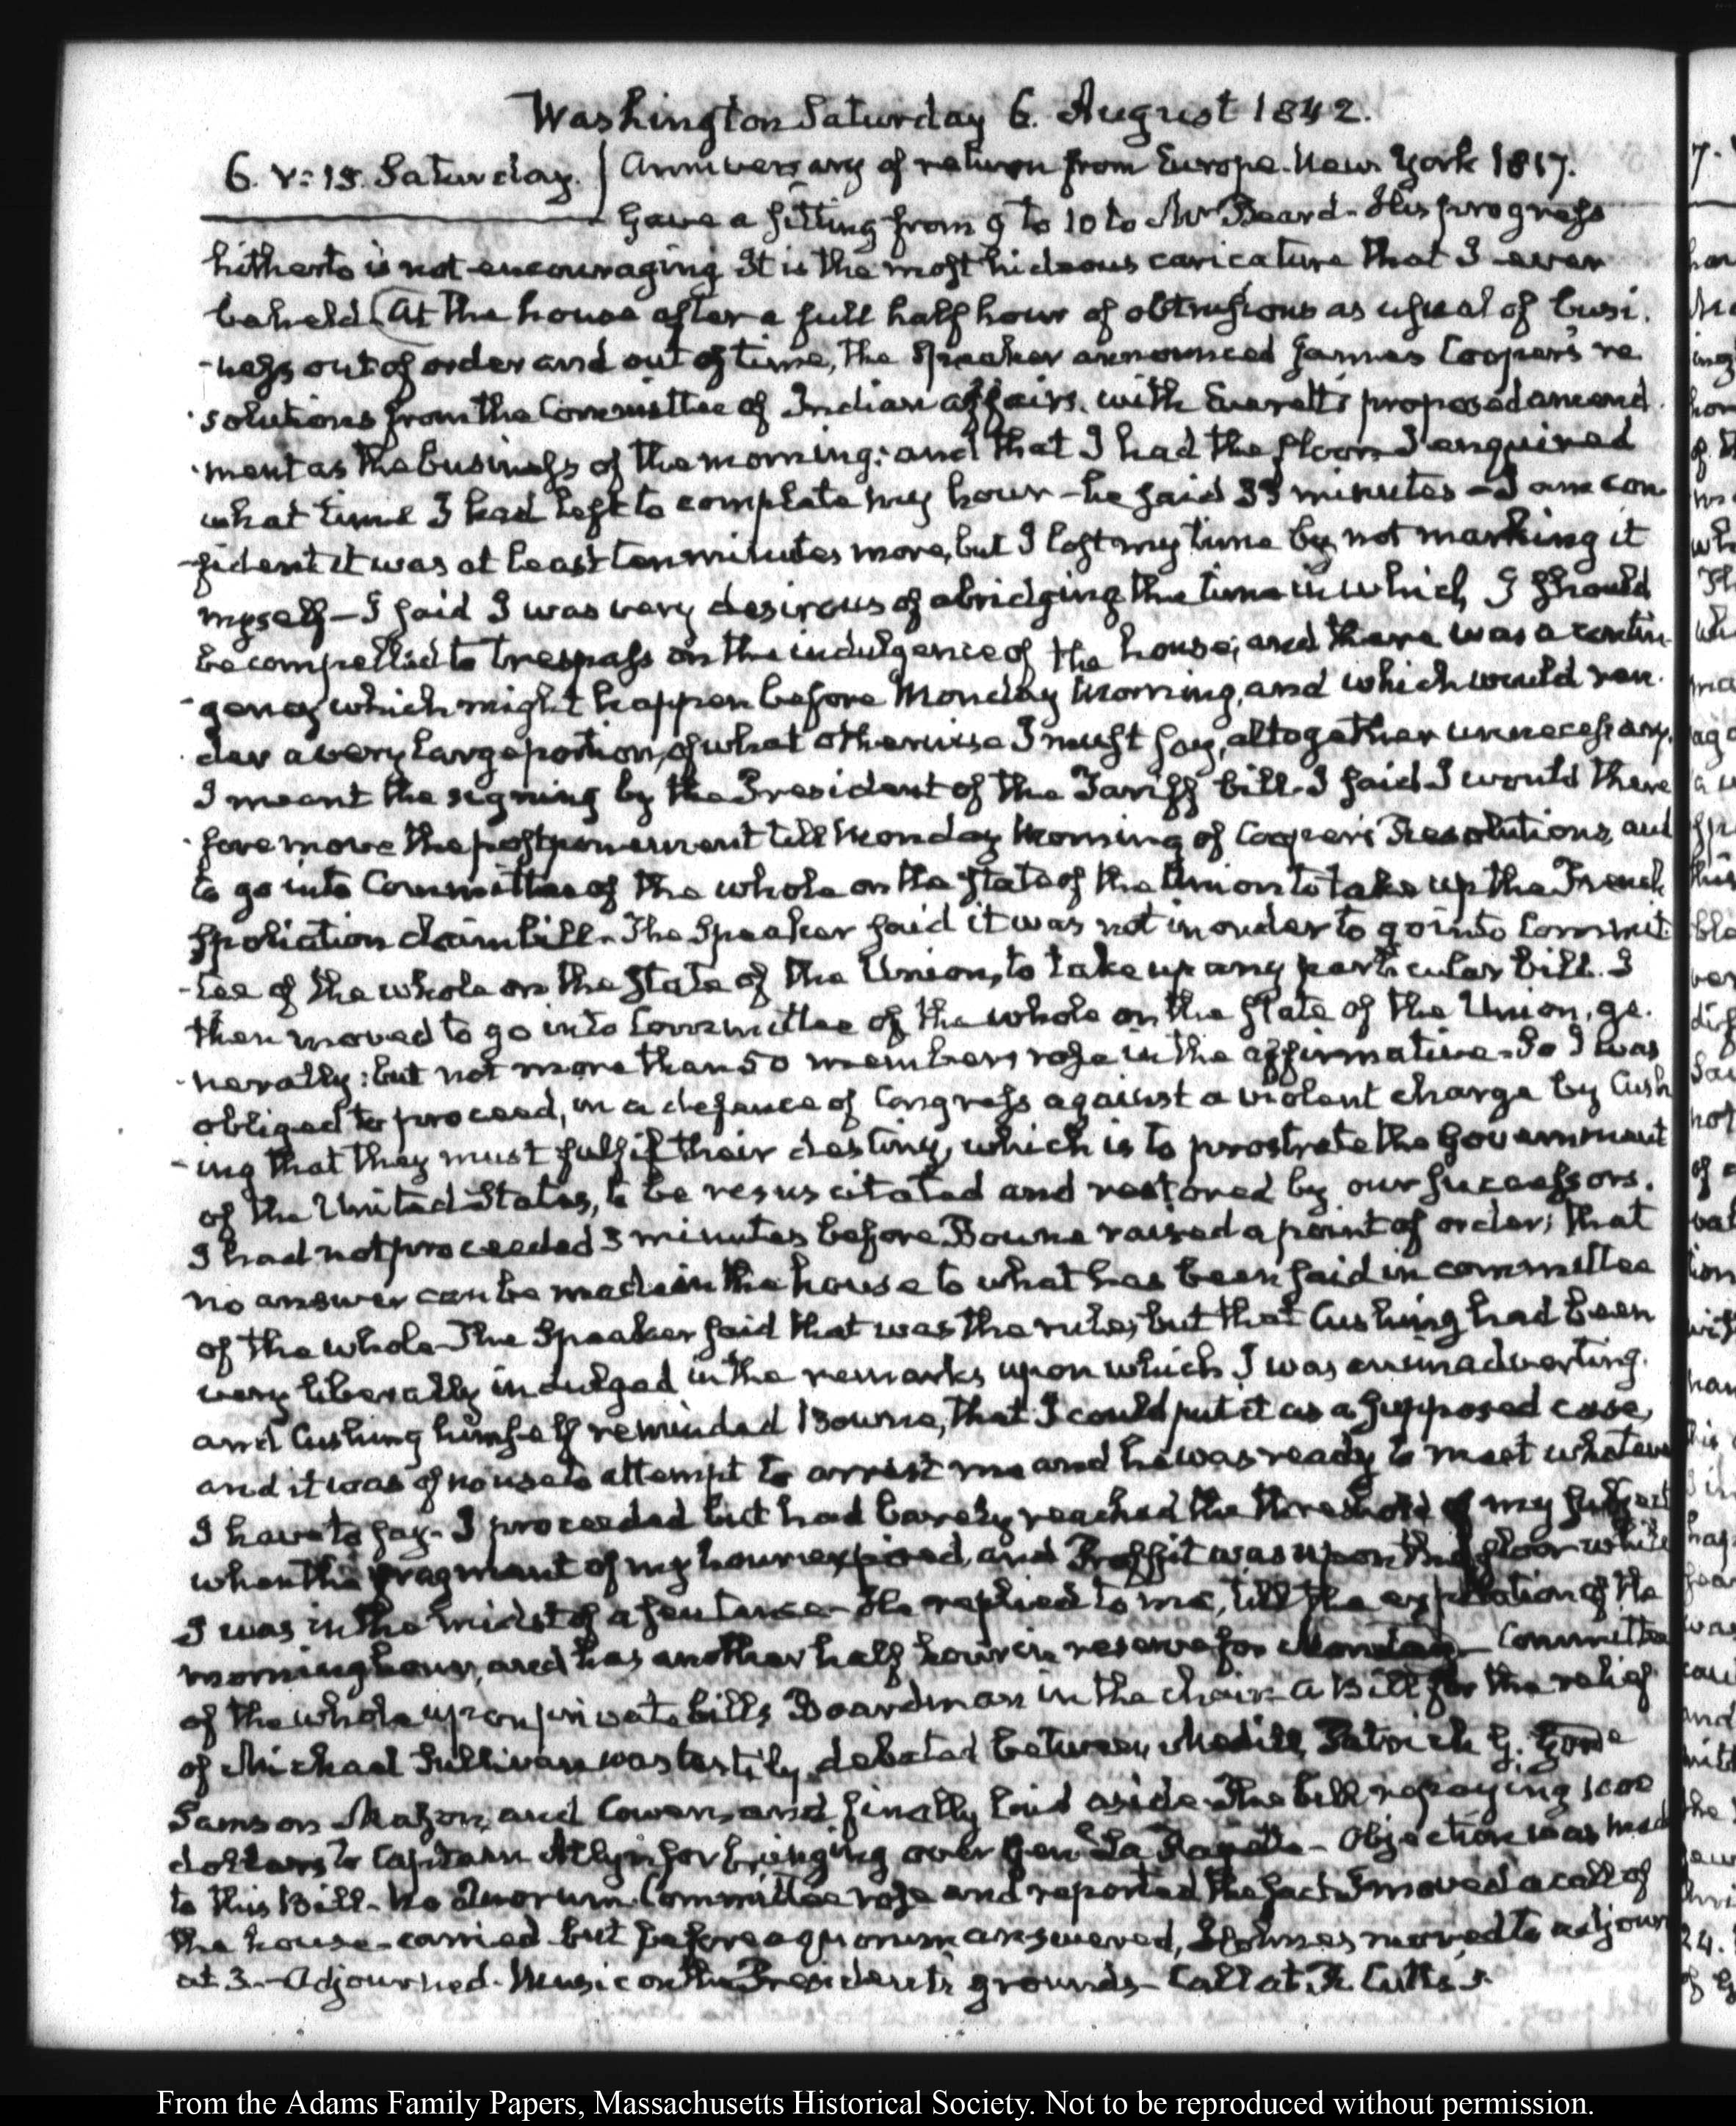 Washington Saturday 6. August 1842.
6. V: 15. Saturday. } Anniversary of return from Europe. New York 1817.
Gave a sitting from 9 to 10 to Mr Beard - His progress
hitherto is not encouraging. It is the most hideous caricature that I ever
beheld (At the house after a full half hour of obtrusions as usual of busi.
-ness out of order and out of time, the Speaker announced James Cooper's re
-solutions from the Committee of Indian affairs, with Everett's proposed amend
-ment as the business of the morning: and that I had the floor I enquired
what time I had left to complete my hour - he said 33 minutes - I am con
-fident it was at least ten minutes more, but I lost my time by not marking it
myself - I said I was very desirous of abridging the time in which I should
be compelled to trespass on the indulgence of the house; and there was a contin-
-gency which might happen before Monday Morning, and which would ren.
der a very large portion, of what otherwise I must say, altogether unnecessary.
I meant the signing by the President of the Tariff bill. I said I would there
-fore move the postponement till Monday Morning of Cooper's Resolutions, and
to go into Committee of the whole on the state of the Union to take up the French
spoliation claim bill - The Speaker said it was not in order to go into Commit
-tee of the whole on the State of the Union, to take up any particular bill. I
then moved to go into Committee of the whole on the state of the Union, ge.
-nerally: but not more than 50 members rose in the affirmative - So I was
obliged to proceed, in a defence of Congress against a violent charge by Cush
-ing that they must fulfil their destiny, which is to prostrate the Government
of the United States, to be resuscitated and restored by our successors.
I had not proceeded 3 minutes before Bowne raised a point of order; that
no answer can be made in the house to what has been said in committee
of the whole - The Speaker said that was the rule; but that Cushing had been
very liberally indulged in the remarks upon which I was animadverting.
and Cushing himself reminded Bowne, that I could put it as a supposed case,
and it was of no use to attempt to arrest me and he was ready to meet whatever
I have to say - I proceeded but had barely reached the threshold of my subject
when the fragment of my hour expired, and Proffit was upon the floor while
I was in the midst of a sentence - He replied to me, till the expiration of the
morning hour, and has another half hour in reserve for Monday - Committee
of the whole upon private bills, Boardman in the chair - A Bill for the relief
of Michael Sullivan was testily debated between Medill, Patrick G. Goode
Samson Mason, and Cowen, and finally laid aside - The bill repaying 1000
dollars to Captain Allyn for bringing over Gen'l La Fayette - Objection was made
to this Bill - No Quorum. Committee rose and reported the fact. I moved a call of
the house - carried but before a quorum answered, Holmes moved to adjourn
at 3 - Adjourned - Music on the President's grounds - Call at R. Cutts's.
From the Adams Family Papers, Massachusetts Historical Society. Not to be reproduced without permission.